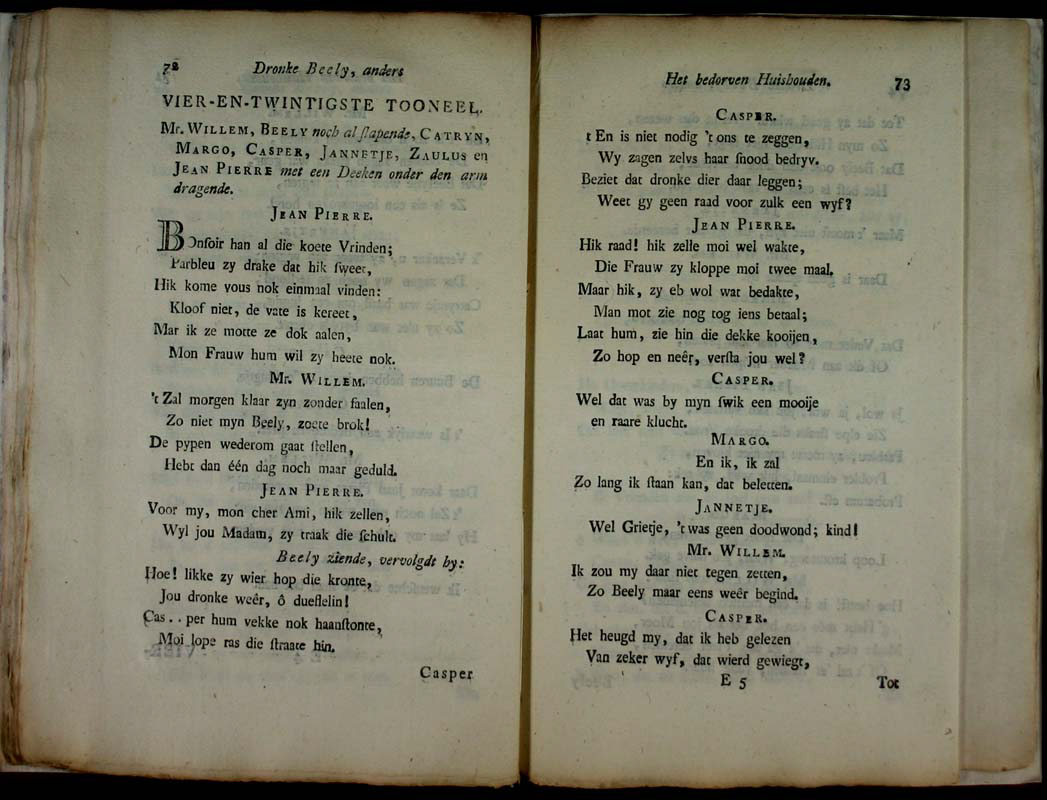 72 Dronke Beely, anders
VIER-EN-TWINTIGSTE TOONEEL.
Mr. WILLEM, BEELY noch al ſlapende, CATRYN,
MARGO, CASPER, JANNETJE, ZAULUS en
JEAN PIERRE met een Deeken onder den arm
dragende.
JEAN PIERRE.
Bonſoir han al die koete Vrinden;
Parbleu zy drake dat hik ſweet,
Hik kome vous nok einmaal vinden:
Kloof niet, de vate is kereet,
Mar ik ze motte ze dok aalen,
Mon Frauw hum wil zy heete nok.
Mr. WILLEM.
't Zal morgen klaar zyn zonder faalen,
Zo niet myn Beely, zoete brok!
De pypen wederom gaat ſtellen,
Hebt dan één dag noch maar geduld.
JEAN PIERRE.
Voor my, mon cher Ami, hik zellen,
Wyl jou Madam, zy traak die ſchult.
Beely ziende, vervolgdt by:
Hoe! likke zy wier hop die kronte,
Jou dronke weêr, ô dueſlelin!
Cas.. per hum vekke nok haanſtonte,
Moi lope ras die ſtraate hin.
Casper
Het bedorven Huishouden. 73
CASPER.
t En is niet nodig 't ons te zeggen,
Wy zagen zelvs haar ſnood bedryv.
Beziet dat dronke dier daar leggen;
Weet gy geen raad voor zulk een wyf?
JEAN PIERRE.
Hik raad! hik zelle moi wel wakte,
Die Frauw zy kloppe moi twee maal.
Maar hik, zy eb wol wat bedakte,
Man mot zie nog tog iens betaal;
Laat hum, zie hin die dekke kooijen,
Zo hop en neêr, verſta jou wel?
CASPER.
Wel dat was by myn ſwik een mooije
en raare klucht.
MARGO.
En ik, ik zal
Zo lang ik ſtaan kan, dat beletten.
JANNETJE.
Wel Grietje, 't was geen doodwond; kind!
Mr. WILLEM.
Ik zou my daar niet tegen zetten,
Zo Beely maar eens weêr begind.
CASPER.
Het heugd my, dat ik heb gelezen
Van zeker wyf, dat wierd gewiegt,
E 5 Tot